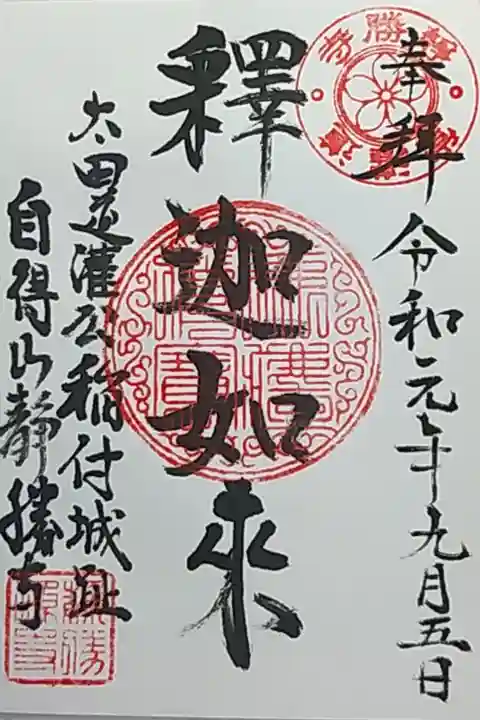 奉拝
令和元年九月五日
釋迦如来
太田道灌公稲付城趾
自得山静勝寺